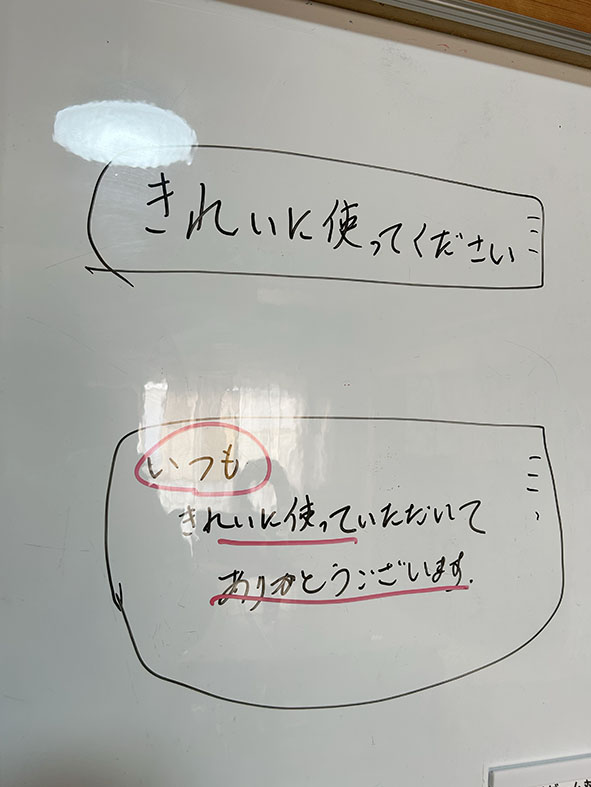 きれいに使ってください
いつも
きれいに使っていただいて
ありがとうございます.